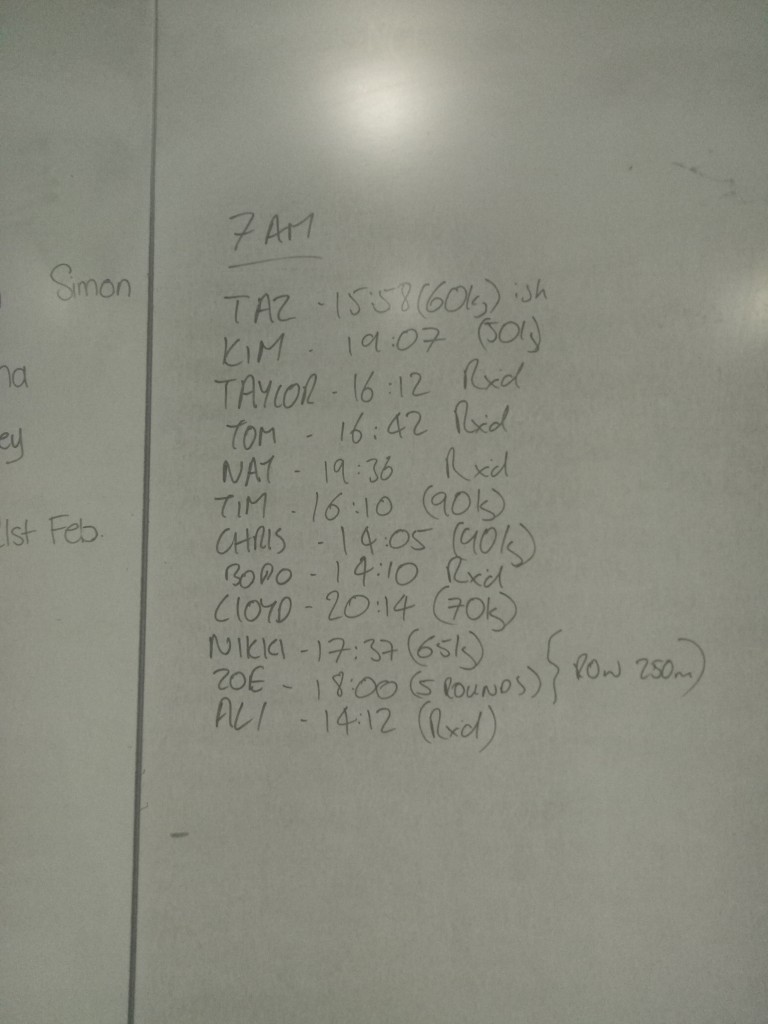 Simon
na
ey
1st Feb.
7 AM
TAZ - 15:58 (60kg) ish
KIM - 19:07 (50kg)
TAYLOR - 16:12 Rxd
TOM - 16:42 Rxd
NAT - 19:36 Rxd
TIM - 16:10 (90kg)
CHRIS - 14:05 (90kg)
BODO - 14:10 Rxd
CLOYD - 20:14 (70kg)
NIKKI - 17:37 (65kg)
ZOE - 18:00 (5 ROUNDS) } ROW 250m)
ALI - 14:12 (Rxd)